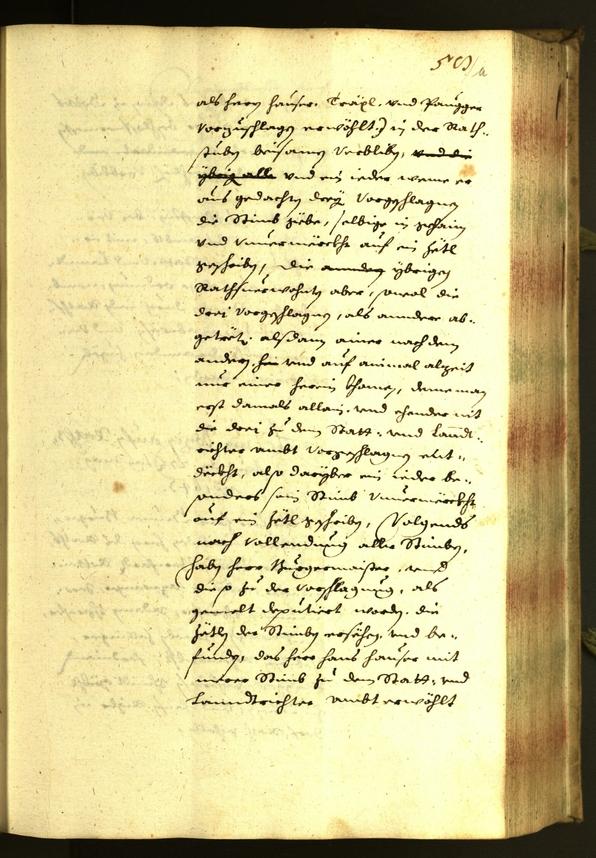 als herrn hauser, Träxl. vnd Paugger
Vorzuschlagen erwöhlt) in der Rath-
stuben beisamen verbliben, vnd die
ybrig alle vnd ein ieder weme er
aus gedachten dreÿ Vorgschlagnen
die Stimb gebe, selbige in gehaim
vnd vnuermörckht auf ein Zötl
geschriben, die andern ybrigen
Rathsuerwohnten aber, sowol die
drei Vorgschlagnen, als anndere ab-
getretn. alsdann ainer nach dem
andern hin vnd auf ainmal alzeit
nur einer herein khomen, deme man
erst damals allain. vnd ehender nit
die drei zu dem Statt- vnd Lanndt-
richter ambt Vorgeschlagnen ent-
döckht, also darüber ein ieder be-
sonders sein Stimb vnuermörckht
auf ein Zötl geschriben, Volgends
nach vollendung aller Stimben,
haben herr Burgermaister, vnd
die so zu der Vorschlagung, als
gemelt deputiert worden. die
Zötln der Stimben ersehen, vnd be-
funden, das herr hans hauser mit
merer Stimb zu dem Statt- vnd
Lanndtrichter ambt erwöhlt